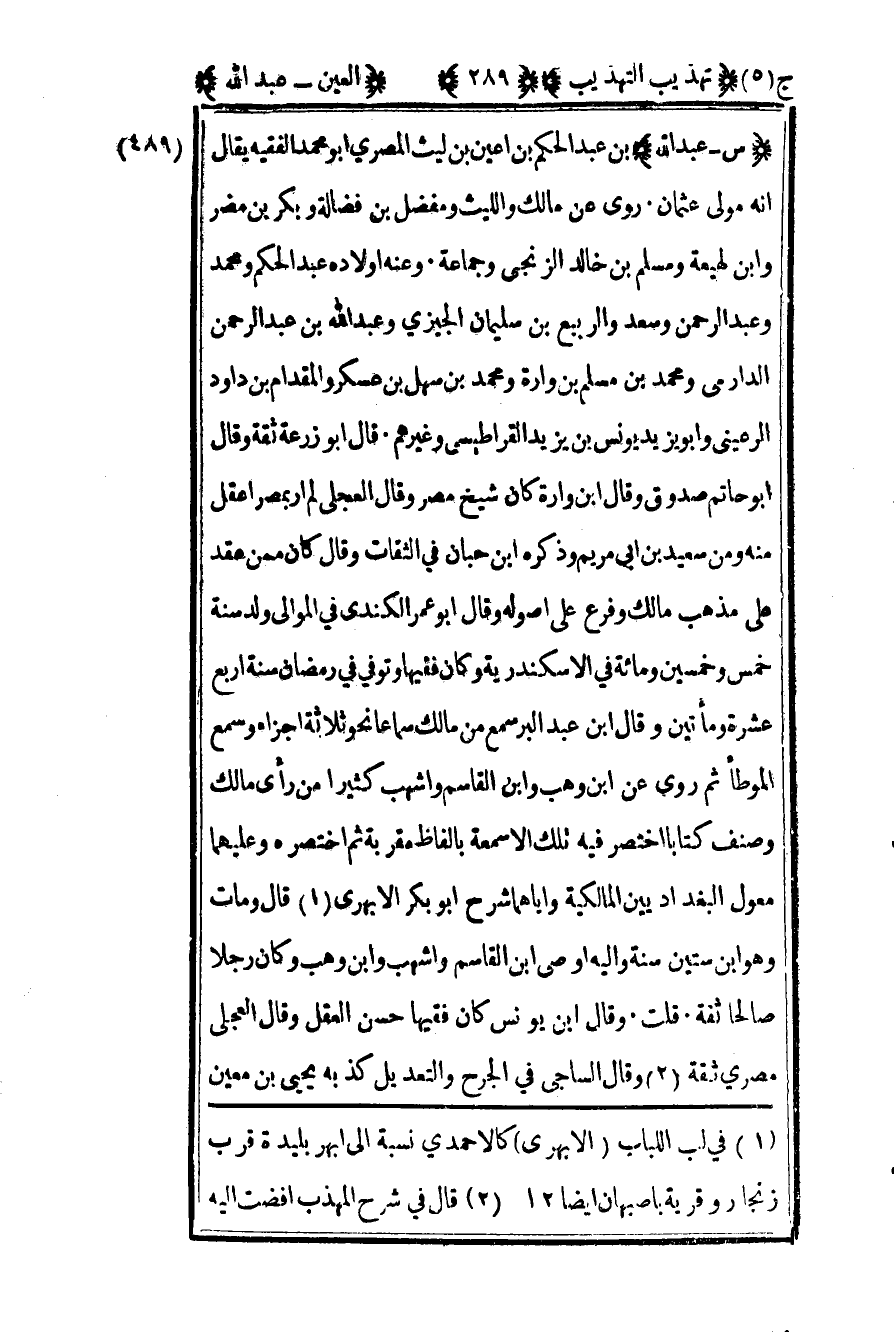 ج(٥) ﴿ تهذيب التهذيب ﴾ ﴿ ٢٨٩ ﴾ ﴿ العين ـ عبد الله ﴾
﴿ س ـ عبدالله ﴾ بن عبدالحكم بن اعين بن ليث المصري ابو محمد الفقيه يقال (٤٨٩)
انه مولى عثمان · روى عن مالك والليث ومفضل بن فضالة وبكر بن مضر
وابن لهيعة ومسلم بن خالد الزنجى وجماعة · وعنه اولاده عبدالحكم ومحمد
وعبدالرحمن وسعد والربيع بن سليمان الجيزي وعبدالله بن عبدالرحمن
الدارمى ومحمد بن مسلم بن وارة ومحمد بن سهل بن عسكر والمقدام بن داود
الرعينى وابويزيد يونس بن يزيد القراطيسى وغيرهم · قال ابو زرعة ثقة وقال
ابوحاتم صدوق وقال ابن وارة كان شيخ مصر وقال العجلى لم اربمصر اعقل
منه ومن سعيد بن ابى مريم وذكره ابن حبان في الثقات وقال كان ممن عقد
على مذهب مالك وفرع على اصوله وقال ابو عمر الكندى في الموالى ولد سنة
خمس وخمسين ومائة في الاسكندرية وكان فقيها وتوفي في رمضان سنة اربع
عشرة ومأتين وقال ابن عبد البر سمع من مالك سماعا نحو ثلاثة اجزاء وسمع
الموطأ ثم روي عن ابن وهب وابن القاسم واشهب كثيرا من رأى مالك
وصنف كتابا اختصر فيه تلك الاسمعة بالفاظ مقربة ثم اختصره وعليهما
معول البغداديين المالكية واياهما شرح ابو بكر الابهرى (١) قال ومات
وهو ابن ستين سنة واليه اوصى ابن القاسم واشهب وابن وهب وكان رجلا
صالحا ثقة · قلت · وقال ابن يونس كان فقيها حسن العقل وقال العجلى
مصري ثقة (٢) وقال الساجى في الجرح والتعديل كذبه يحيى بن معين
(١) في لب اللباب (الابهرى) كالاحمدي نسبة الى ابهر بليدة قرب
زنجار وقرية باصبهان ايضا ١٢ (٢) قال في شرح المهذب افضت اليه